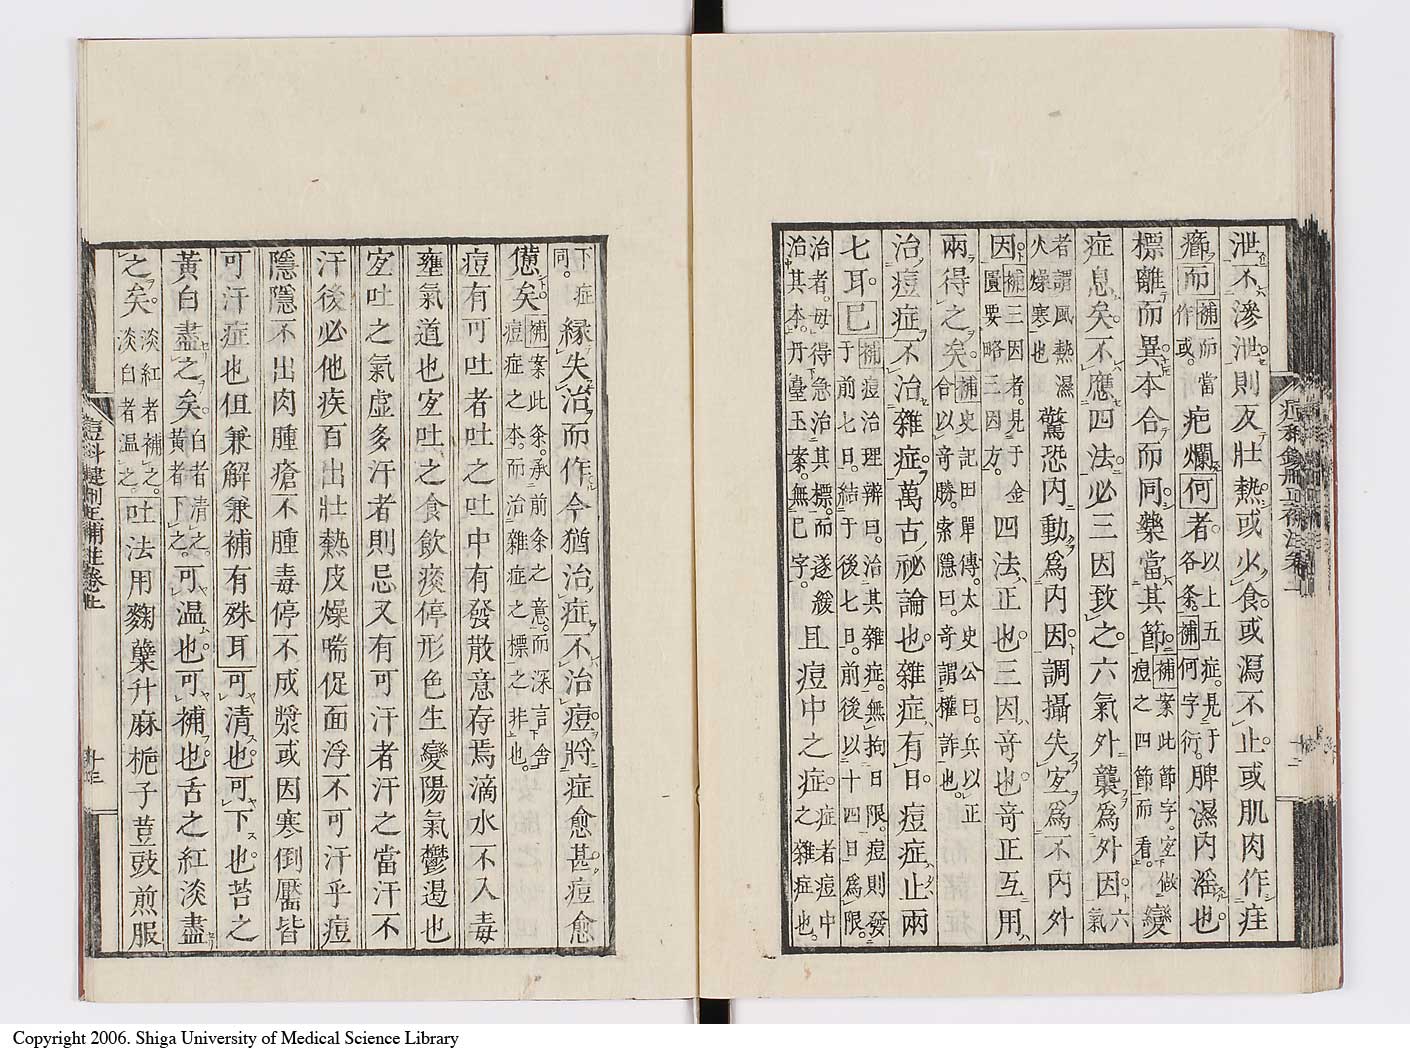 泄不滲泄則友壯熱或火食或瀉不止或肌肉作疰
癤而補而當作或。疤爛何者。以上五症。見于各条。補何字衍。脾濕内滛也。
標離而異本合而同藥當其節補案此節字。宜做痘之四節而看。變
症息矣不應四法必三因致之六氣外襲爲外因六氣
者謂風熱濕火燥寒也驚恐内動爲内因調攝失宜爲不内外
因補三因者。見于金匱要略三因方。四法正也三因竒也竒正互用
兩得之矣補史記田單傳。太史公曰。兵以正合以竒勝。索隱曰。竒謂權詐也。
治痘症不治雜症萬古祕論也雜症有日痘症止兩
七耳。已補痘治理辨曰。治其雜症。無拘日限。痘則發于前七日。結于後七日。前後以十四日爲限。
治者。毋得急治其標。而遂緩治其本。丹臺玉案。無已字。且痘中之症。症者痘中之雜症也。
下症同。縁失治而作今猶治症不治痘將症愈甚痘愈
憊矣補案此条。承前条之意。而深言舎痘症之本。而治雜症之標之非也。
痘有可吐者吐之吐中有發散意存焉滴水不入毒
壅氣道也宜吐之食飲痰停形色生變陽氣鬱遏也
宜吐之氣虚多汗者則忌又有可汗者汗之當汗不
汗後必他疾百出壯熱皮燥喘促面浮不可汗乎痘
隱隱不出肉腫瘡不腫毒停不成漿或因寒倒靨皆
可汗症也但兼解兼補有殊耳可清也可下也苔之
黄白盡之矣。白者清之。黄者下之。可温也可補也舌之紅淡盡
之矣。淡紅者補之。淡白者温之。吐法用麴蘖升麻梔子荳豉煎服
痘科鍵刪正補註卷上
十三